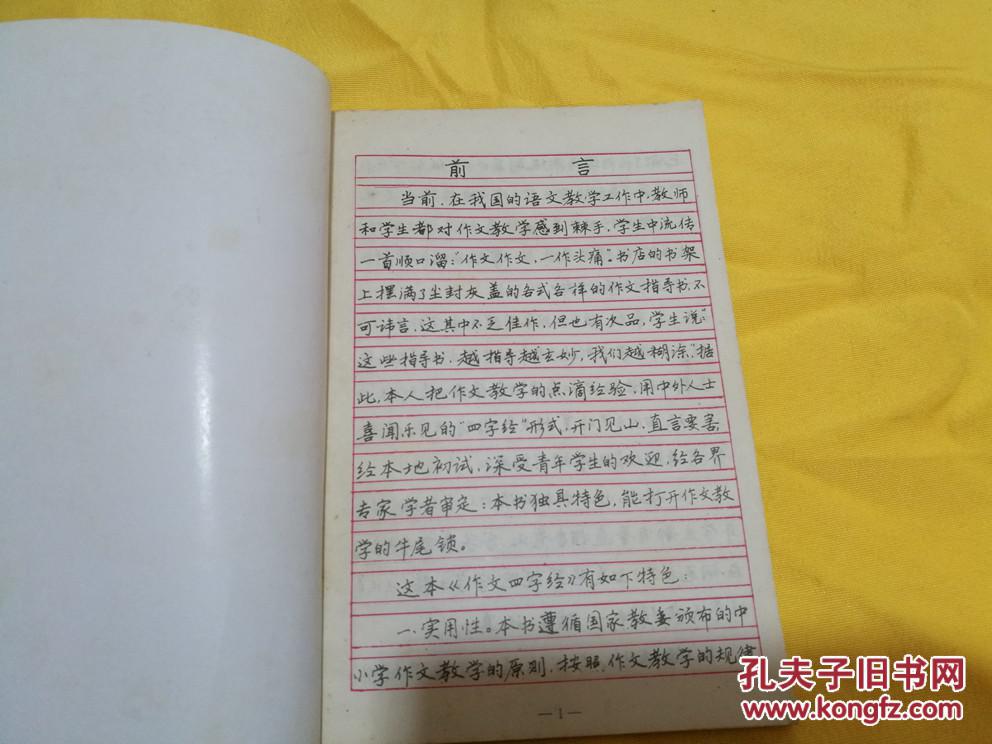 前 言
当前，在我国的语文教学工作中，教师
和学生都对作文教学感到棘手，学生中流传
一首顺口溜：“作文作文，一作头痛”。书店的书架
上摆满了尘封灰盖的各式各样的作文指导书，不
可讳言，这其中不乏佳作，但也有次品，学生说：“
这些指导书，越指导越玄妙，我们越糊涂。”据
此，本人把作文教学的点滴经验，用中外人士
喜闻乐见的“四字经”形式，开门见山，直言要害
经本地初试，深受青年学生的欢迎，经各界
专家学者审定：本书独具特色，能打开作文教
学的牛尾锁。
这本《作文四字经》有如下特色：
一、实用性。本书遵循国家教委颁布的中
小学作文教学的原则，按照作文教学的规律
—1—
孔夫子旧书网
www.kongfz.com